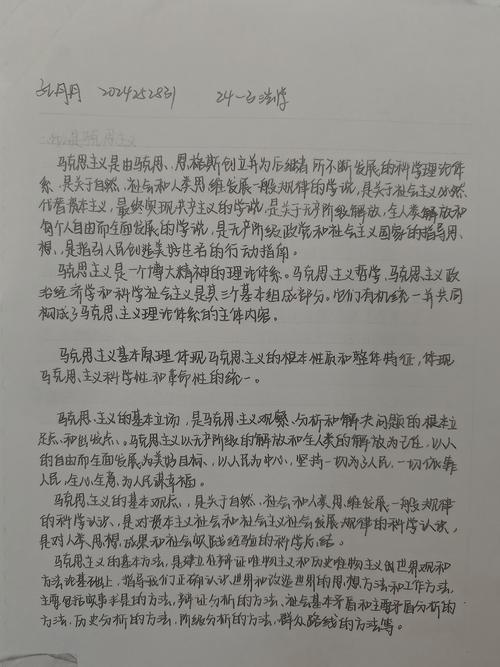 孔丹丹 2024252831 24-2法学
马克思主义是由马克思、恩格斯创立并为后继者所不断发展的科学理论体
系,是关于自然、社会和人类思维发展一般规律的学说,是关于社会主义必然
代替资本主义,最终实现共产主义的学说,是关于无产阶级解放、全人类解放和
每个人自由而全面发展的学说,是无产阶级政党和社会主义国家的指导思
想,是指引人民创造美好生活的行动指南。
马克思主义是一个博大精神的理论体系。马克思主义哲学、马克思主义政
治经济学和科学社会主义是其三个基本组成部分。它们有机统一并共同
构成了马克思主义理论体系的主体内容。
马克思主义基本原理体现马克思主义的根本性质和整体特征,体现
马克思主义科学性和革命性的统一。
马克思主义的基本立场,是马克思主义观察、分析和解决问题的根本立
足点和出发点。马克思主义以无产阶级的解放和全人类的解放为己任,以人
的自由而全面发展为美好目标,以人民为中心,坚持一切为了人民,一切依靠
人民,全心全意为人民谋幸福。
马克思主义的基本观点,是关于自然、社会和人类思维发展一般规律
的科学认识,是对资本主义社会和社会主义社会发展规律的科学认识,
是对人类思想成果和社会实践经验的科学总结。
马克思主义的基本方法,是建立在辩证唯物主义和历史唯物主义的世界观和
方法论基础上,指导我们正确认识世界和改造世界的思想方法和工作方法,
主要包括实事求是的方法、辩证分析的方法、社会基本矛盾和主要矛盾分析的
方法,历史分析的方法,阶级分析的方法,群众路线的方法等。